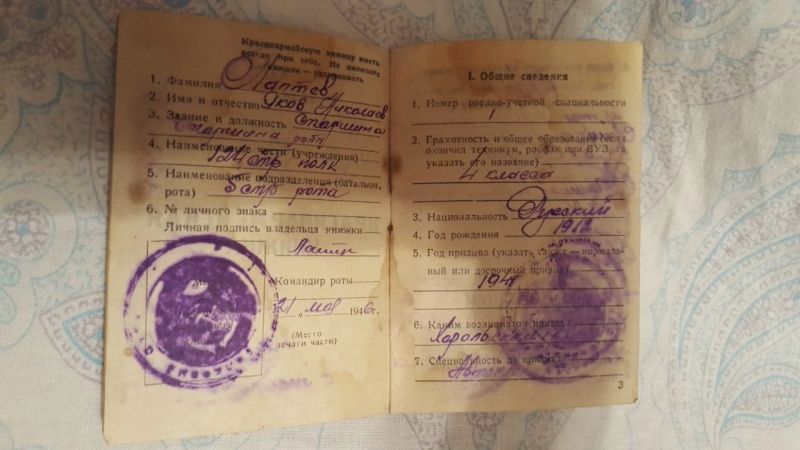 Красноармейскую книжку иметь
всегда при себе. Не имеющих
книжек — задерживать
1. Фамилия Лаптев
2. Имя и отчество Яков Николаев
3. Звание и должность Старшина
Старшина роты
4. Наименование части (учреждения)
124 стр полк
5. Наименование подразделения (батальон,
рота) 3 стр рота
6. № личного знака
Личная подпись владельца книжки
Лапте
Командир роты
21 „ мая 1946 г.
(Место
печати части)
I. Общие сведения
1. Номер военно-учетной специальности
1
2. Грамотность и общее образование (если
окончил техникум, рабфак или ВУЗ, то
указать его название)
4 класса
3. Национальность Русский
4. Год рождения 1912
5. Год призыва (указать также — нормаль-
ный или досрочный призыв)
1941
6. Каким военкоматом призван
7. Специальность до призыва
3